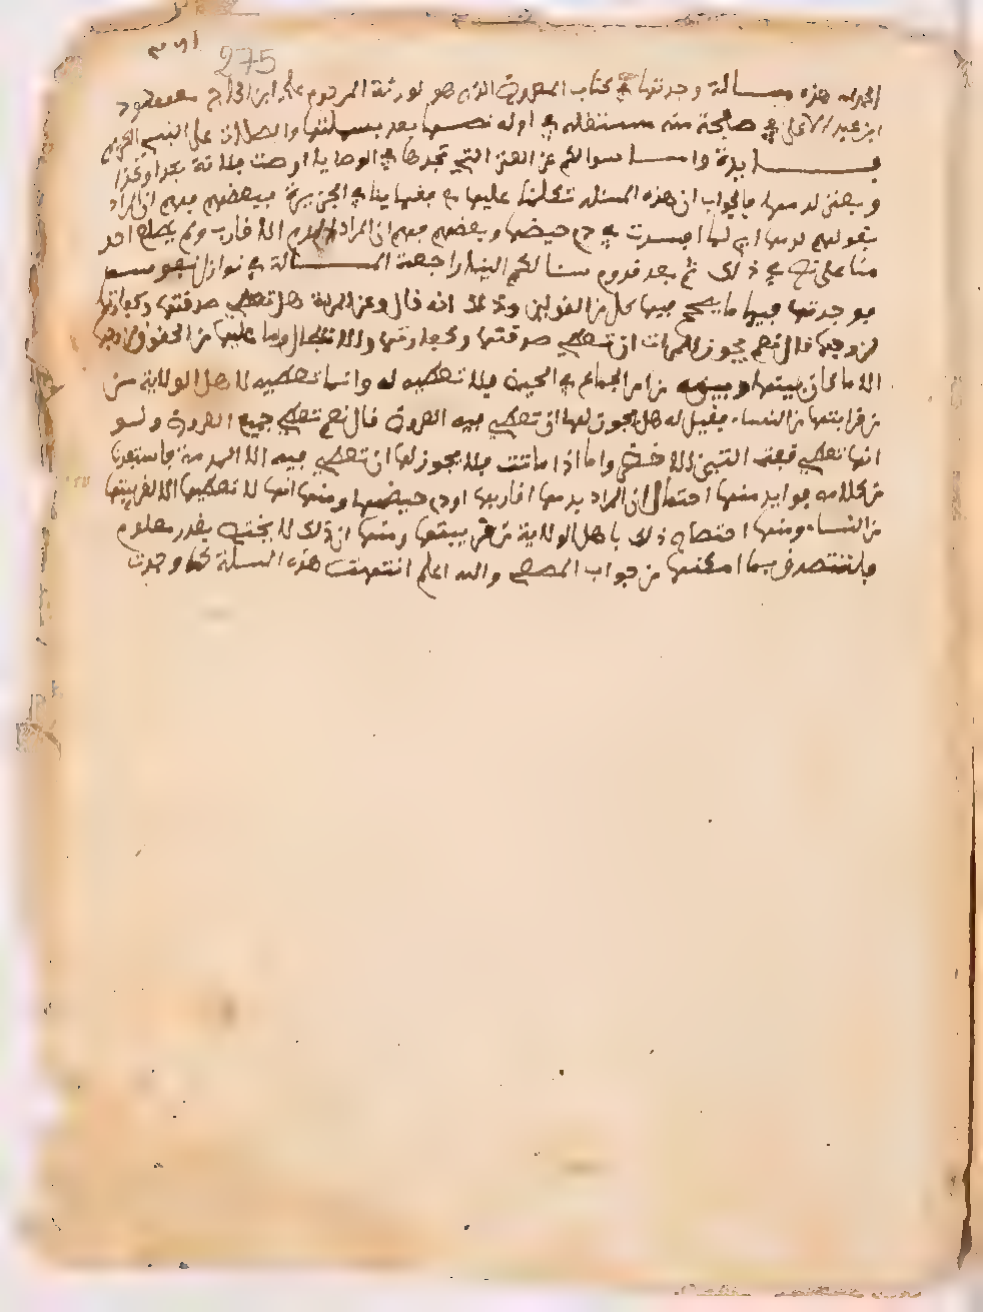 275
الحمد لله هذه مسالة وجدتها في كتاب المعروف الذي هو لورثة المرحوم علي ابن الحاج مسعود
ابن عبد الاعلى في صفحة منه مستقلة في اوله نصها بعد بسملتها والصلاة على النبي الكريم
فايدة واما سوالكم عن العنز التي تجدها في الوصايا اوصت فلانة بجدا وكذا
وبعنز لدمها فالجواب ان هذه المسئلة شكلنا عليها في فقهاينا في الجزيرة فبعضهم فهم ان المراد
بقولهم لدمها اي لما افسدت في دم حيضها وبعضهم فهم ان المراد الاقارب ولم يطلع احد
منا على نص في ذلك ثم بعد قدوم سوالكم الينا راجعت المسالة في نوازل نفوسة
فوجدتها فيها ما يصح فيها كل من القولين وذلك انه قال وعن المرية هل تعطي صدقتها وكفارتها
لزوجها قال نعم يجوز للمرات ان تعطي صدقتها وكفارتها والانتصال وما عليها من الحقوق لزوجها
الا ما كان بينها وبينه من امر الجماع في الحيض فلا تعطيه له وانما تعطيه لاهل الولاية من
من قرابتها من النساء فقيل له هل يجوز لها ان تعطي فيه العروض قال نعم تعطي جميع العروض ولو
انها تعطي قبعة التبن الاخضر واما اذا ماتت فلا يجوز لها ان تعطي فيه الا النسمة فاستفدنا
من كلامه فوايد منها احتمال ان المراد بدمها اقاربها او دم حيضها ومنها انها لا تعطيها الا لقريبتها
من النساء ومنها اختصاص ذلك باهل الولاية من قريبتها ومنها ان ذلك لا يختص بقدر معلوم
فلتتصدق بما امكنها من جواب المصعبي والله اعلم انتهت هذه المسلة كما وجدت